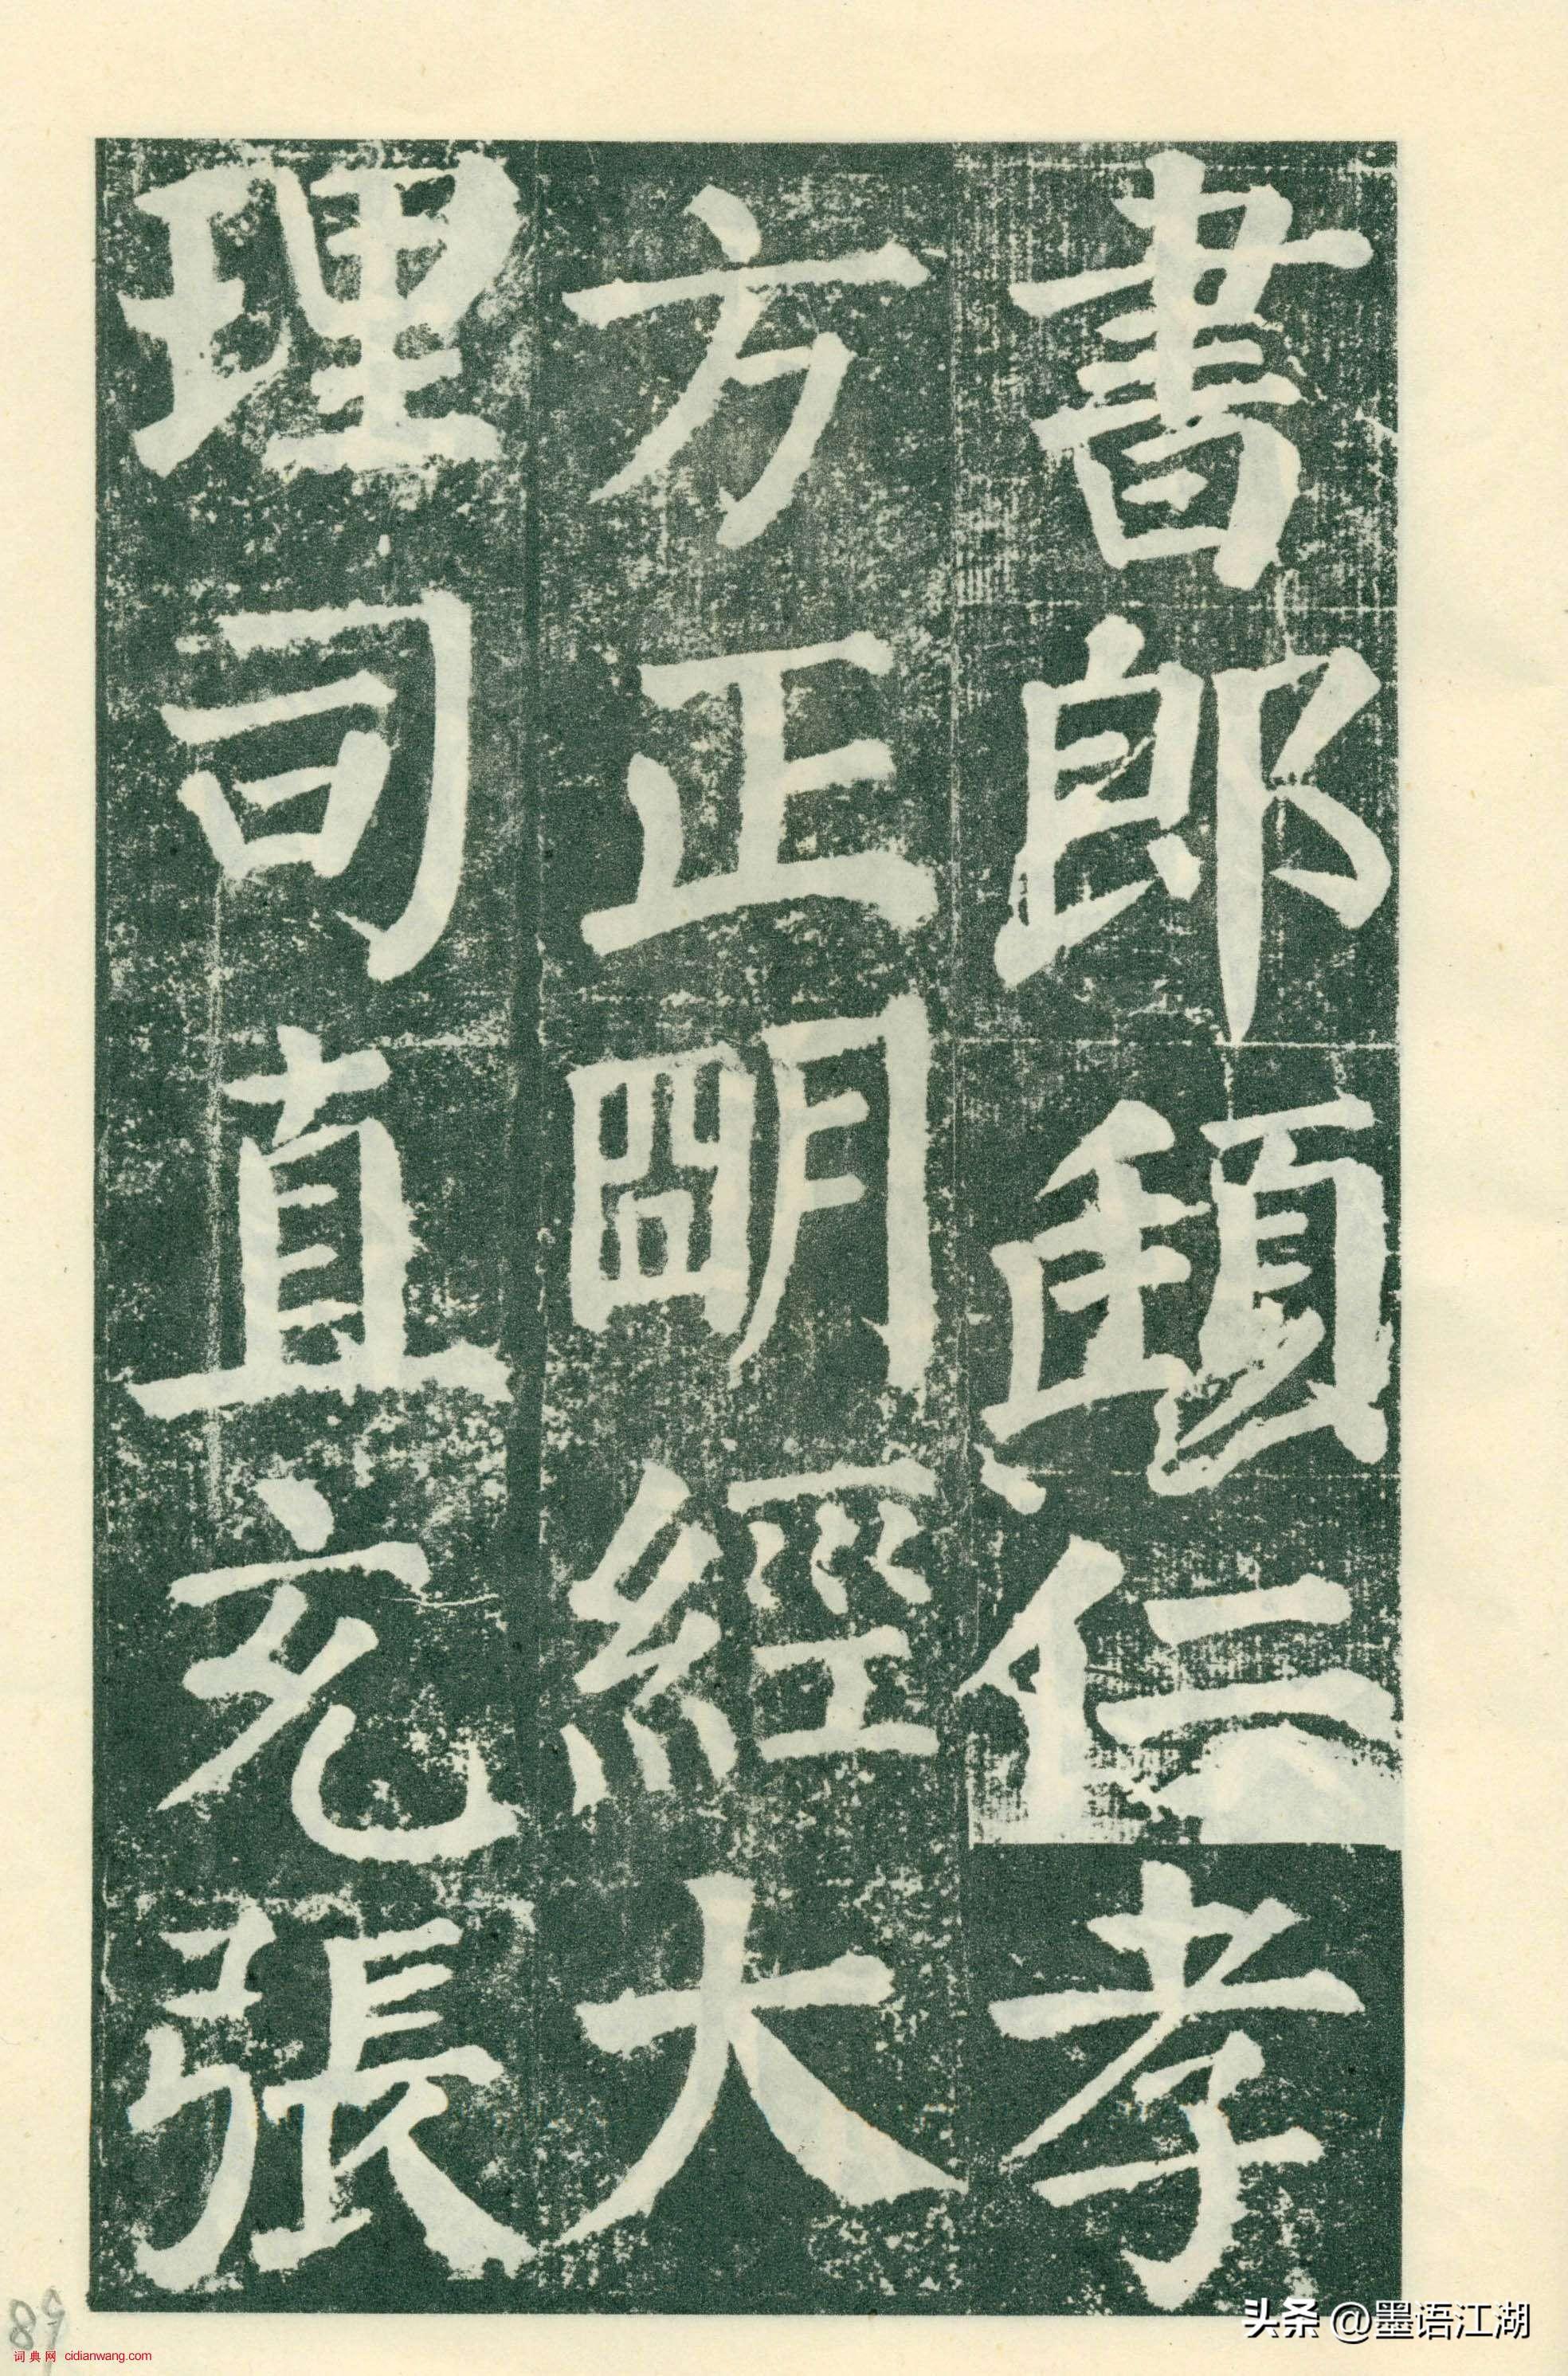 書郎頲仁孝
方正朙經大
理司直充張
89
词典网 cidianwang.com
头条 @墨语江湖